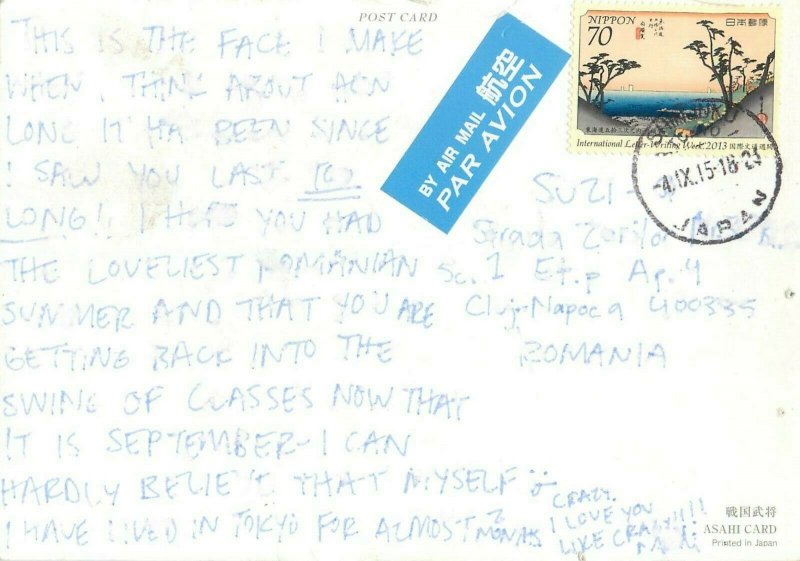 POST CARD
THIS IS THE FACE I MAKE
WHEN I THINK ABOUT HOW
LONG IT HAS BEEN SINCE
I SAW YOU LAST TOO
LONG! I HOPE YOU HAD
THE LOVELIEST ROMANIAN
SUMMER AND THAT YOU ARE
GETTING BACK INTO THE
SWING OF CLASSES NOW THAT
IT IS SEPTEMBER-I CAN
HARDLY BELIEVE THAT MYSELF
I HAVE LIVED IN TOKYO FOR ALMOST 2 MONTHS
CRAZY.
I LOVE YOU
LIKE CRAZY!!!
BY AIR MAIL 航空
PAR AVION
NIPPON 日本郵便
70
東海道五拾三次之内
International Letter-Writing Week, 2013 国際文通週間
-4.IX.15-18-24
JAPAN
SUZI
Strada Zorilor
Sc. 1 Et.p Ap. 4
Cluj-Napoca 400335
ROMANIA
戦国武将
ASAHI CARD
Printed in Japan